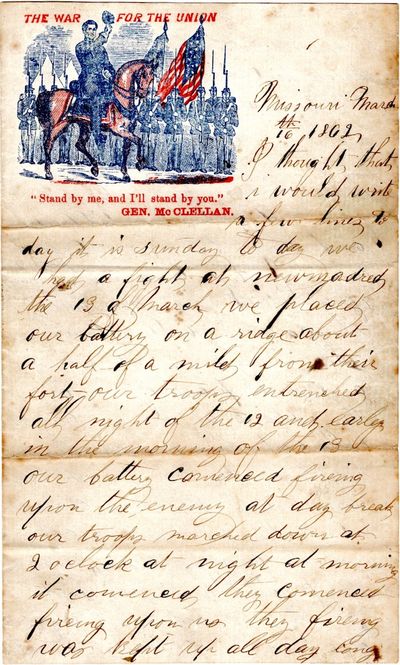 THE WAR FOR THE UNION
"Stand by me, and I'll stand by you."
GEN. McCLELLAN.
Missouri March
th
16 1862
I thought that
i would write
a few lines to
day it is sunday to day we
had a fight at newmadred
the 13 d March we placed
our battery on a ridge about
a half of a mild from their
fort our troops entrenched
all night of the 12 and earley
in the morning of the 13
our battery comenced fireing
upon the enemy at day break
our troops marched down at
2 oclock at night at morning
it comenced they comenced
fireing upon us they fireing
was kept up all day long